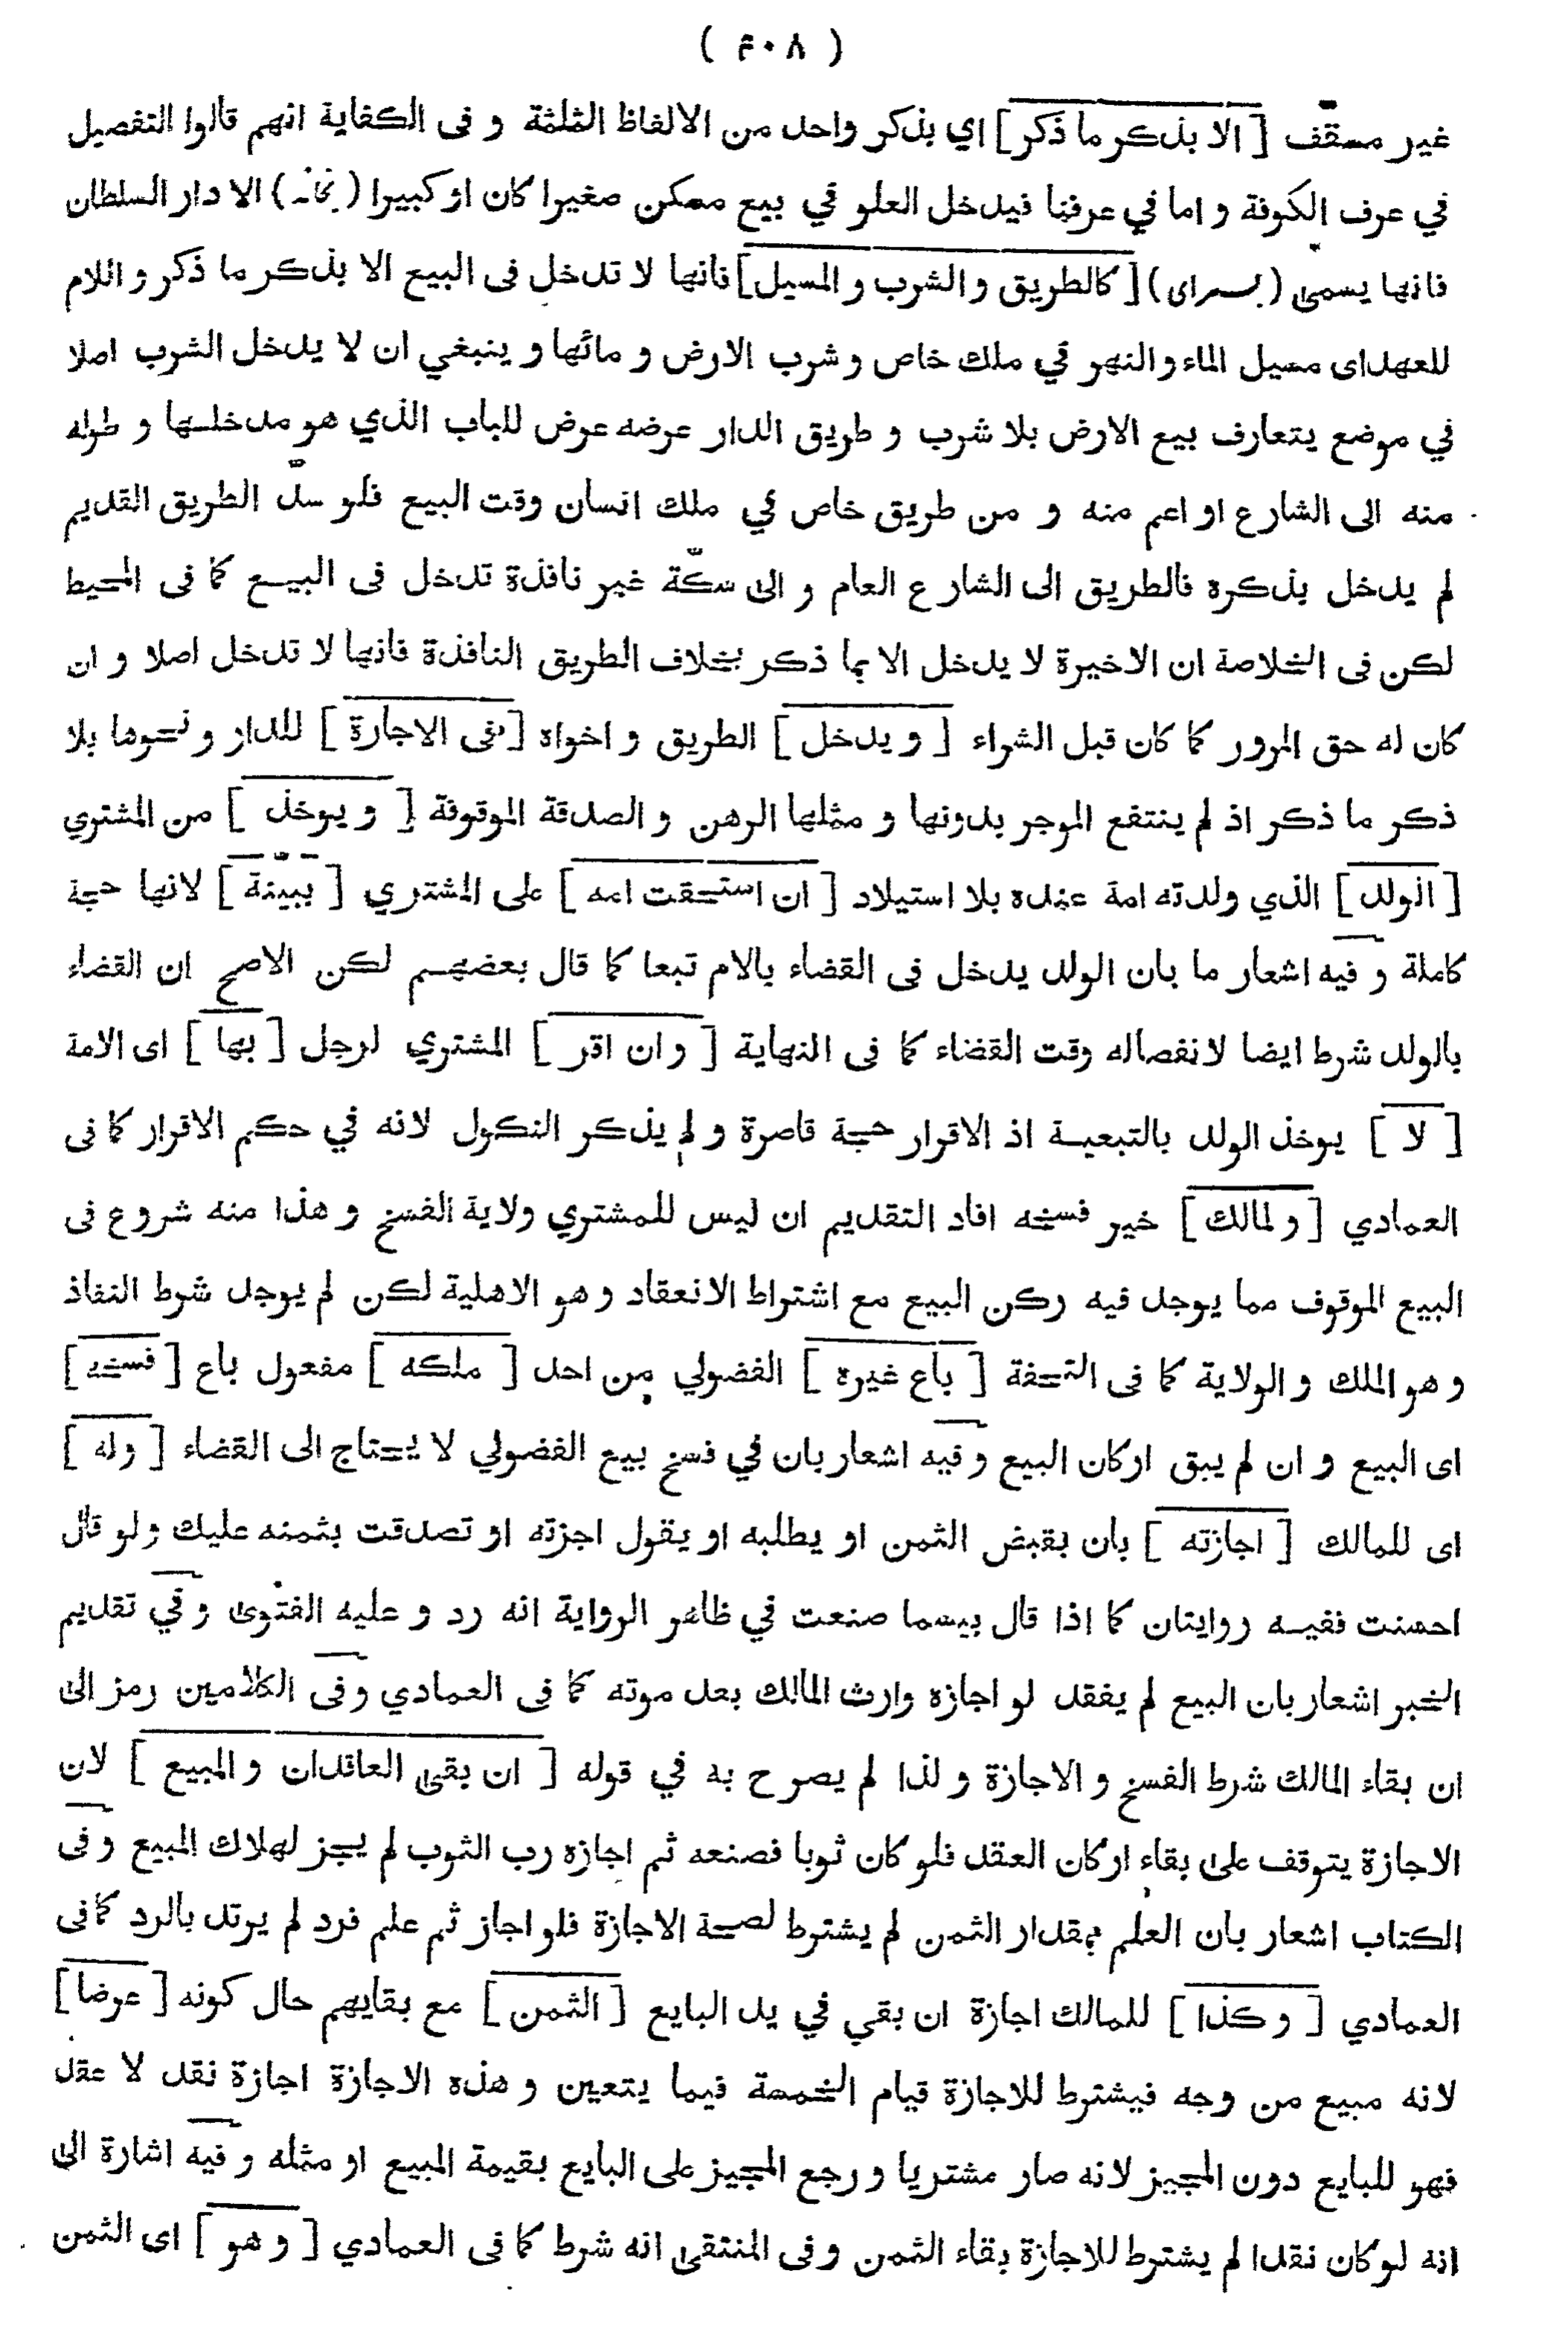 ( ۴۰۸ )
غير مسقّف [ الا بذكر ما ذكر ] اي بذكر واحد من الالفاظ الثلثة و فى الكفاية انهم قالوا التفصيل
في عرف الكوفة و اما في عرفنا فيدخل العلو في بيع مسكن صغيرا كان او كبيرا ( بخانه ) الا دار السلطان
فانها يسمى ( بسراى ) [ كالطريق و الشرب و المسيل ] فانها لا تدخل فى البيع الا بذكر ما ذكر و اللام
للعهد اى مسيل الماء و النهر في ملك خاص و شرب الارض و مائها و ينبغي ان لا يدخل الشرب اصلا
في موضع يتعارف بيع الارض بلا شرب و طريق الدار عرضه عرض للباب الذي هو مدخلها و طوله
منه الى الشارع او اعم منه و من طريق خاص في ملك انسان وقت البيع فلو سدّ الطريق القديم
لم يدخل بذكره فالطريق الى الشارع العام و الى سكّة غير نافذة تدخل فى البيع كما فى المحيط
لكن فى الخلاصة ان الاخيرة لا يدخل الا بما ذكر بخلاف الطريق النافذة فانها لا تدخل اصلا و ان
كان له حق المرور كما كان قبل الشراء [ و يدخل ] الطريق و اخواه [ فى الاجارة ] للدار و نحوها بلا
ذكر ما ذكر اذ لم ينتفع الموجر بدونها و مثلها الرهن و الصدقة الموقوفة [ و يوخذ ] من المشتري
[ الولد ] الذي ولدته امة عنده بلا استيلاد [ ان استحقت امه ] على المشتري [ ببيّنة ] لانها حجة
كاملة و فيه اشعار ما بان الولد يدخل فى القضاء بالام تبعا كما قال بعضهم لكن الاصح ان القضاء
بالولد شرط ايضا لانفصاله وقت القضاء كما فى النهاية [ و ان اقر ] المشتري لرجل [ بها ] اى الامة
[ لا ] يوخذ الولد بالتبعية اذ الاقرار حجة قاصرة و لم يذكر النكول لانه في حكم الاقرار كما فى
العمادي [ و لمالك ] خير فسخه افاد التقديم ان ليس للمشتري ولاية الفسخ و هذا منه شروع فى
البيع الموقوف مما يوجد فيه ركن البيع مع اشتراط الانعقاد و هو الاهلية لكن لم يوجد شرط النفاذ
و هو الملك و الولاية كما فى التحفة [ باع غيره ] الفضولي من احد [ ملكه ] مفعول باع [ فسخه ]
اى البيع و ان لم يبق اركان البيع و فيه اشعار بان في فسخ بيع الفضولي لا يحتاج الى القضاء [ و له ]
اى للمالك [ اجازته ] بان بقبض الثمن او يطلبه او يقول اجزته او تصدقت بثمنه عليك و لو قال
احسنت ففيه روايتان كما اذا قال بيسما صنعت في ظاهر الرواية انه رد و عليه الفتوى و في تقديم
الخبر اشعار بان البيع لم يفقد لو اجازه وارث المالك بعد موته كما فى العمادي و فى الكلامين رمز الى
ان بقاء المالك شرط الفسخ و الاجازة و لذا لم يصرح به في قوله [ ان بقى العاقدان و المبيع ] لان
الاجازة يتوقف على بقاء اركان العقد فلو كان ثوبا فصنعه ثم اجازه رب الثوب لم يجز لهلاك المبيع و فى
الكتاب اشعار بان العلم بمقدار الثمن لم يشترط لصحة الاجازة فلو اجاز ثم علم فرد لم يرتد بالرد كما فى
العمادي [ و كذا ] للمالك اجازة ان بقي في يد البايع [ الثمن ] مع بقايهم حال كونه [ عرضا ]
لانه مبيع من وجه فيشترط للاجازة قيام الخمسة فيما يتعين و هذه الاجازة اجازة نقد لا عقد
فهو للبايع دون المجيز لانه صار مشتريا و رجع المجيز على البايع بقيمة المبيع او مثله و فيه اشارة الى
انه لو كان نقدا لم يشترط للاجازة بقاء الثمن و فى المنتقى انه شرط كما فى العمادي [ و هو ] اى الثمن